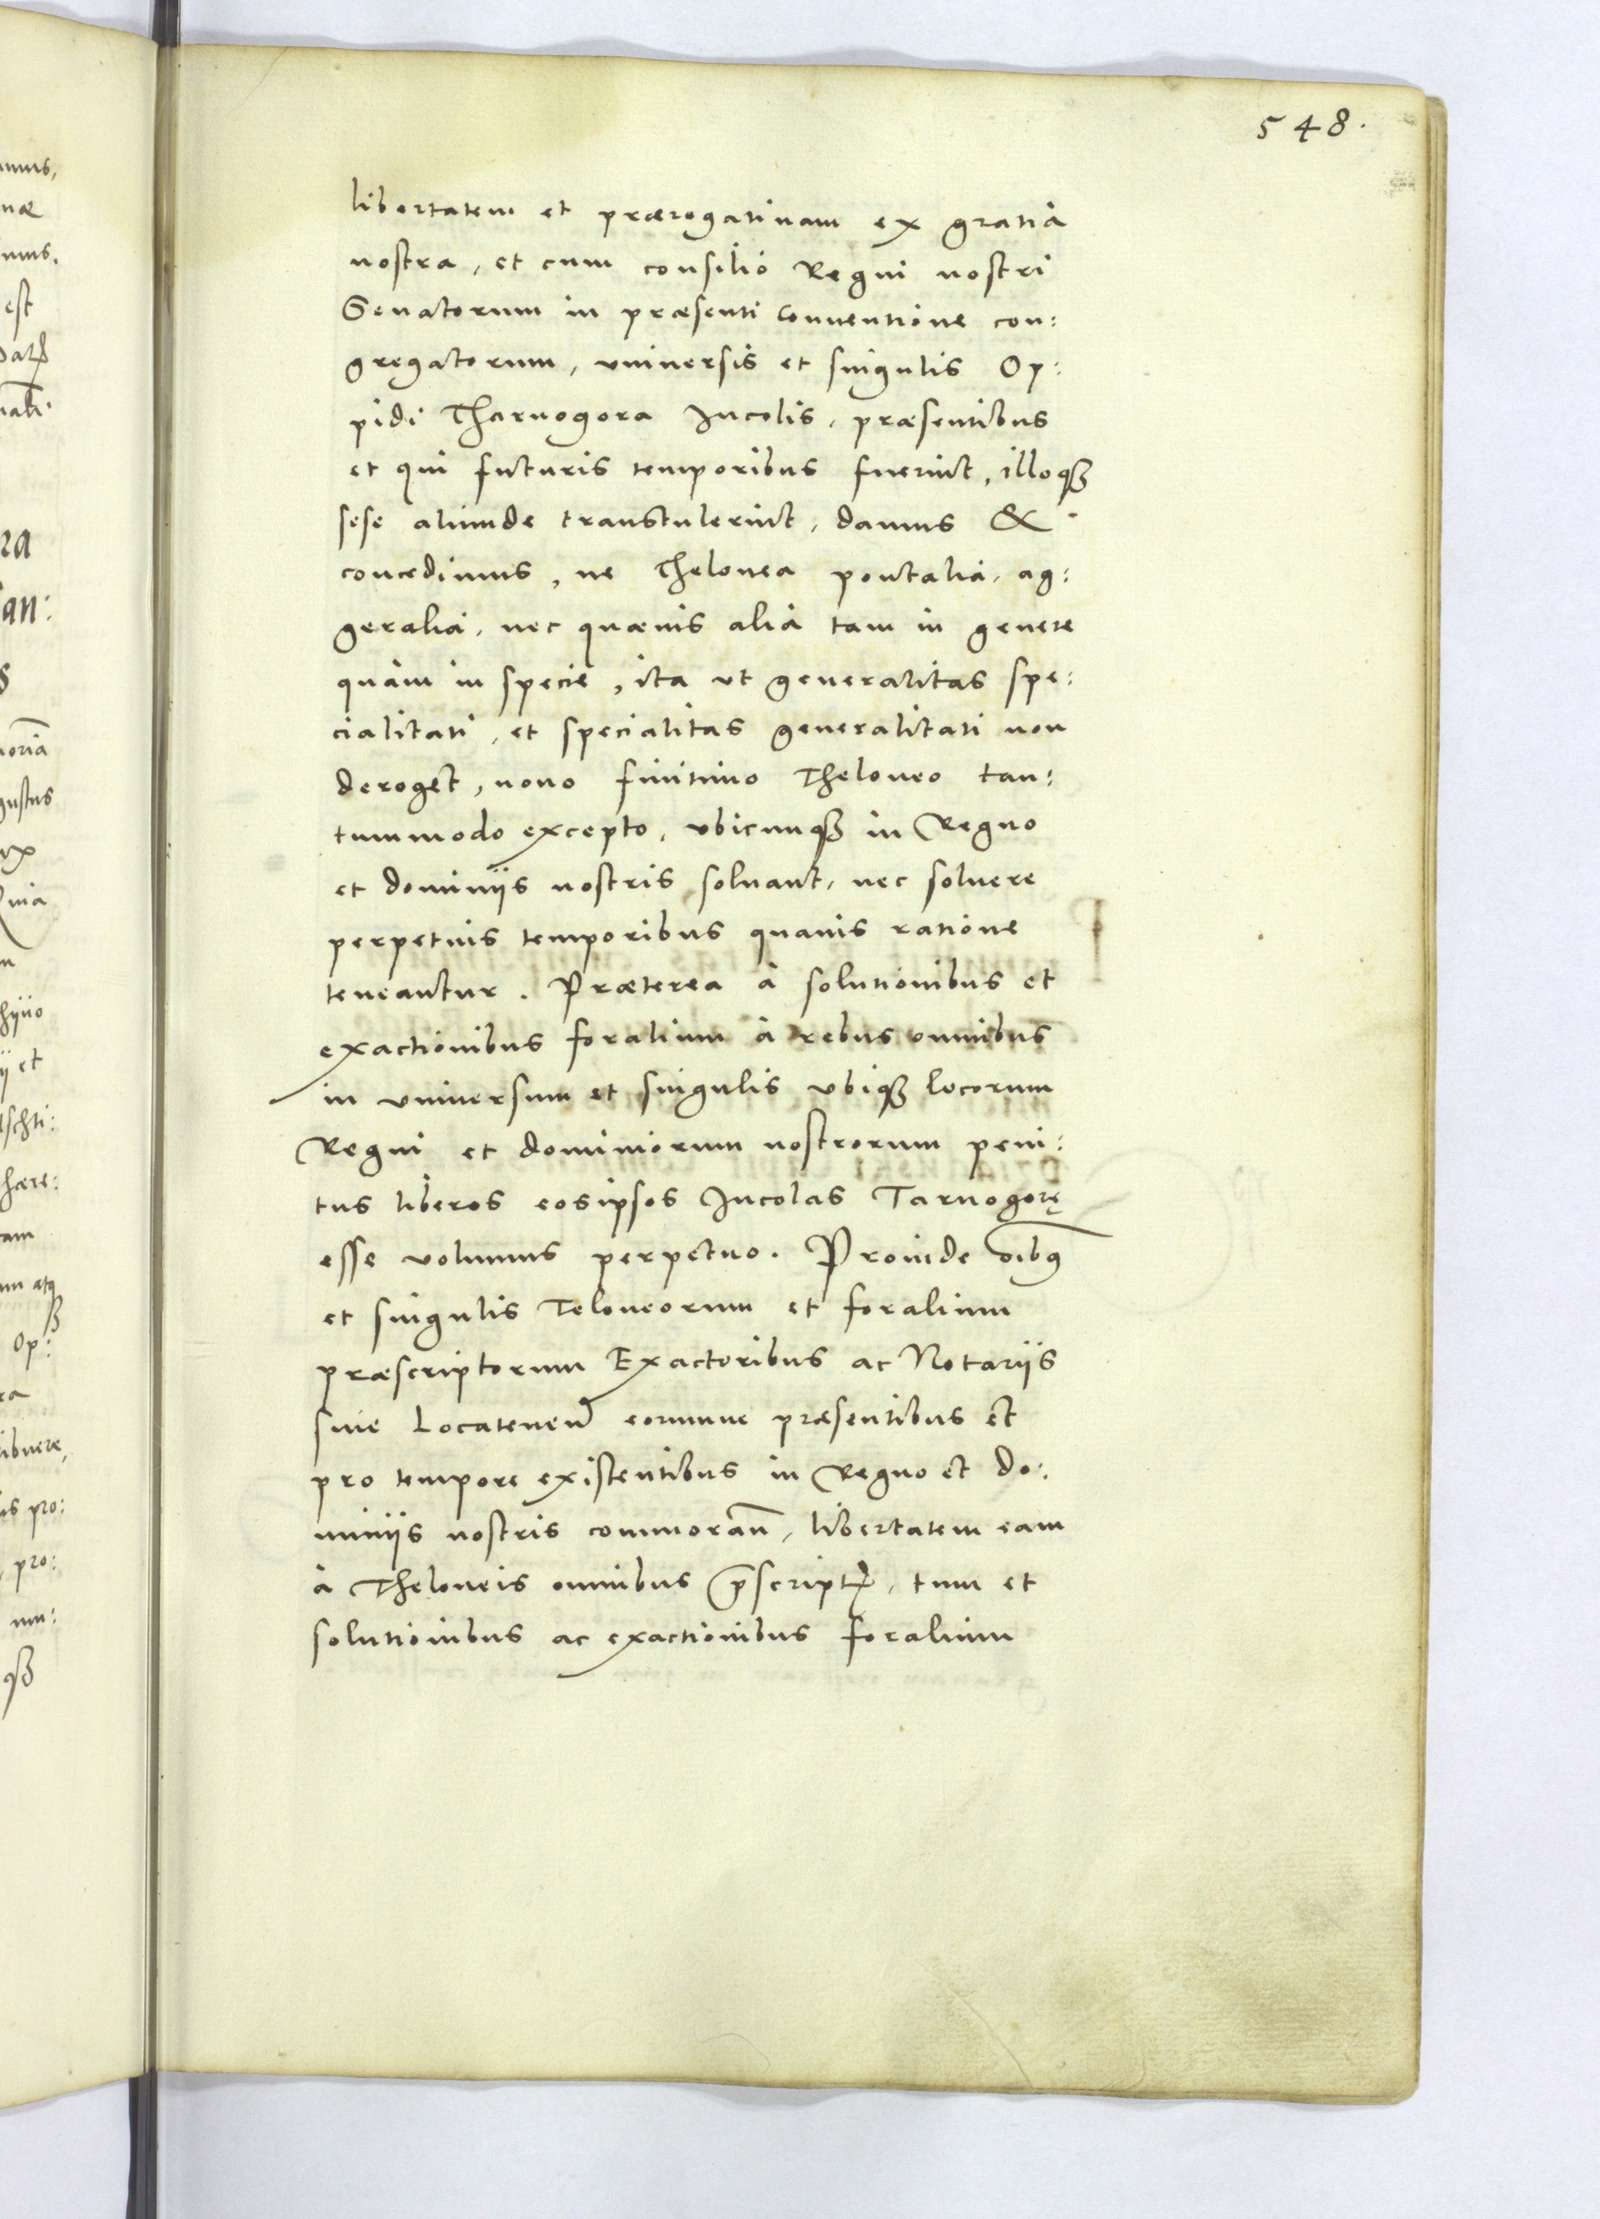 548.
libertatem et prærogatiuam ex gratia
nostra, et cum consilio Regni nostri
Senatorum in præsenti Conuentione con:
gregatorum, vniuersis et singulis Op:
pidi Tharnogora Incolis, præsentibus
et qui futuris temporibus fuerint, illoqꝫ
sese aliunde transtulerint, damus &
concedimus, ne Thelonea pontalia, ag:
geralia, nec quæuis alia tam in genere
quàm in specie, ita vt generalitas spe:
cialitati, et specialitas generalitati non
deroget, nouo finitimo Theloneo tan:
tummodo excepto, vbicunqꝫ in Regno
et dominijs nostris soluant, nec soluere
perpetuis temporibus quauis ratione
teneantur. Præterea à solutionibus et
exactionibus foralium à rebus omnibus
in vniuersum et singulis vbiqꝫ locorum
Regni et dominiorum nostrorum peni:
tus liberos eosipsos Incolas Tarnogorę
esse volumus perpetuo. Proinde oībꝰ
et singulis Teloneorum et foralium
præscriptorum Exactoribus ac Notarijs
siue Locatenen̄ eorumue præsentibus et
pro tempore existentibus in Regno et do:
minijs nostris commoran̄, libertatem eam
à Theloneis omnibus p̄scriptꝭ, tum et
solutionibus ac exactionibus foralium